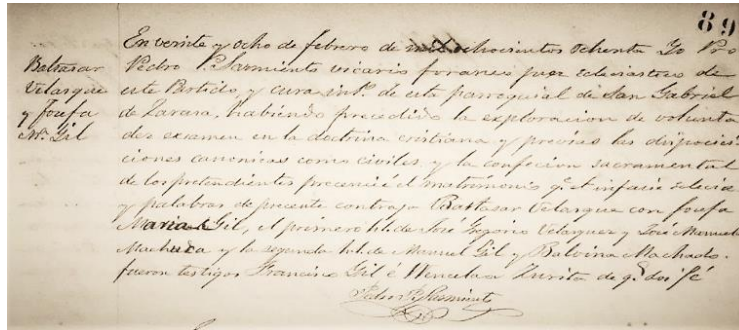 89
Baltasar
Velasque
y Josefa
Mª Gil
En veinte y ocho de febrero de mil ochocientos ochenta Yo Pbo
Pedro P. Sarmiento vicario foraneo juez eclesiastico de
este Partido, y cura intº de esta parroquial de San Gabriel
de Zaraza, habiendo precedido la exploracion de volunta
des examen en la doctrina cristiana y previas las
ciones canonicas como civiles, y la confecion sacramental
de los pretendientes precencié el matrimonio qe in facie eclecia
y palabras de presente contrajo Baltasar Velasque con Josefa
Maria Gil, el primero h. l. de José Gregorio Velasquez y José Manuela
Machuca y la segunda h. l. de Manuel Gil y Balvina Machado.
fueron testigos Francisco Gil e Wencelaa Zurita de qe doi fé
Pedro P. Sarmiento